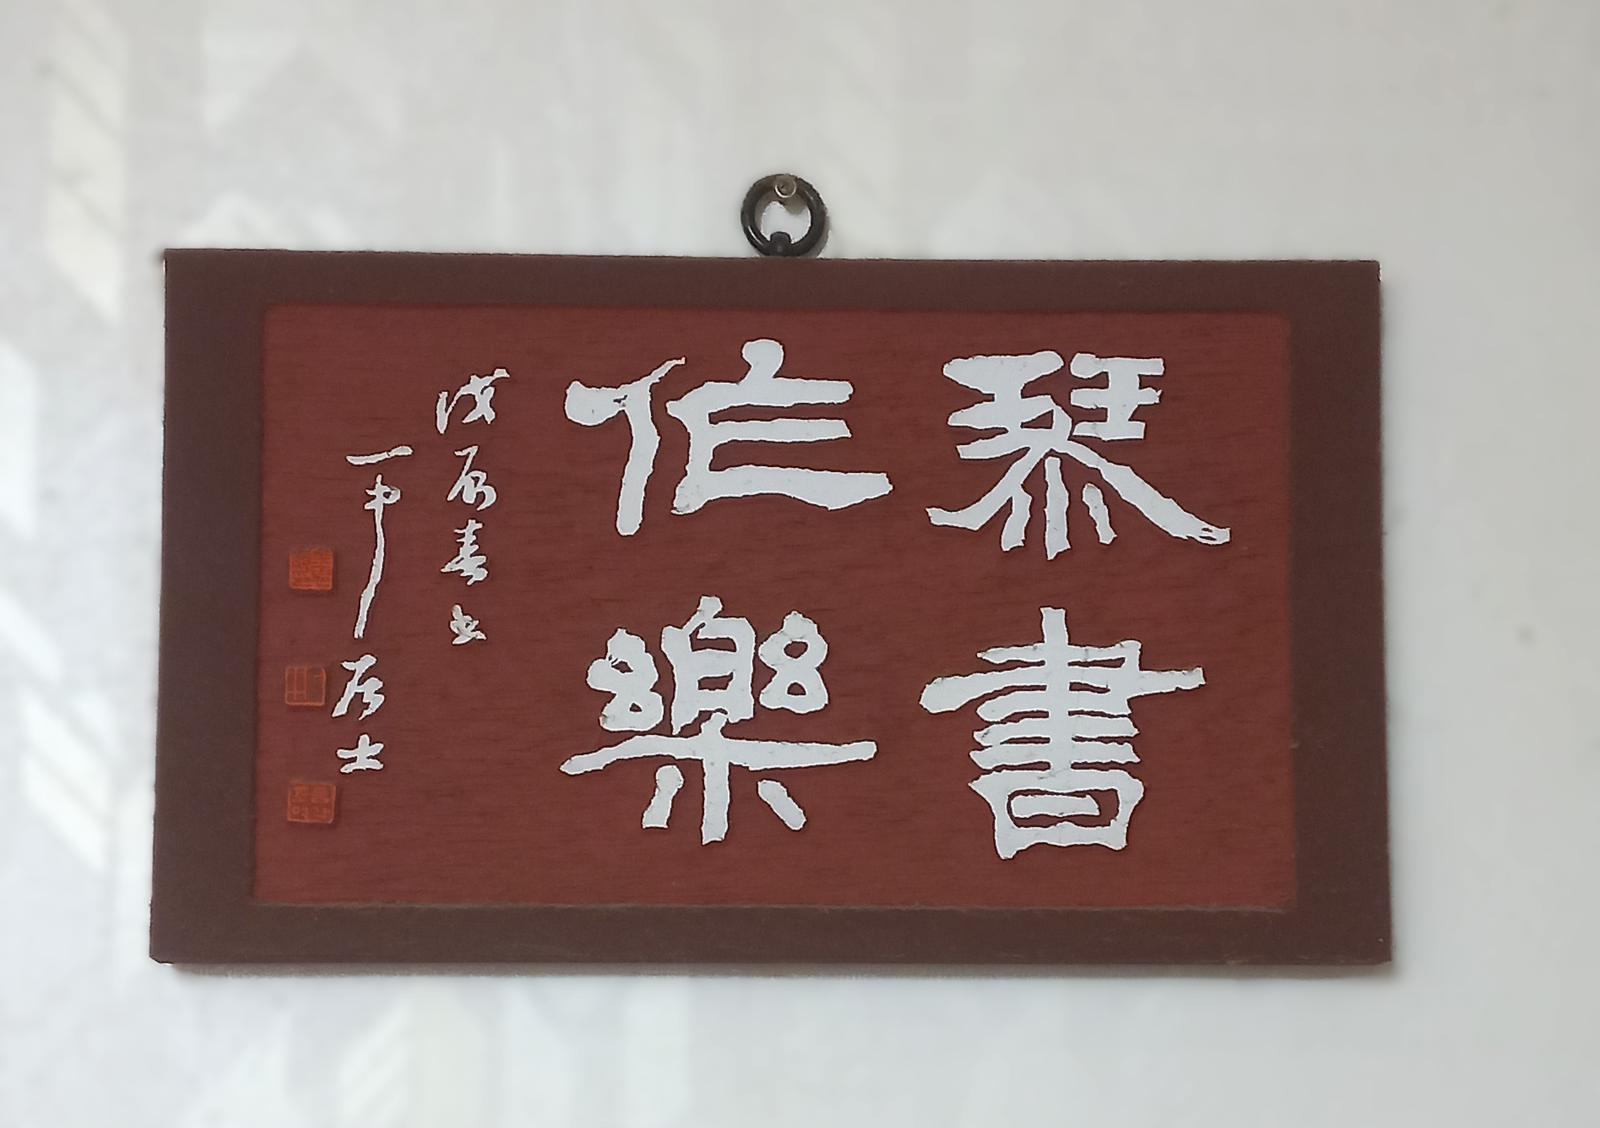 琴書
作樂
戊辰春書
一中居士